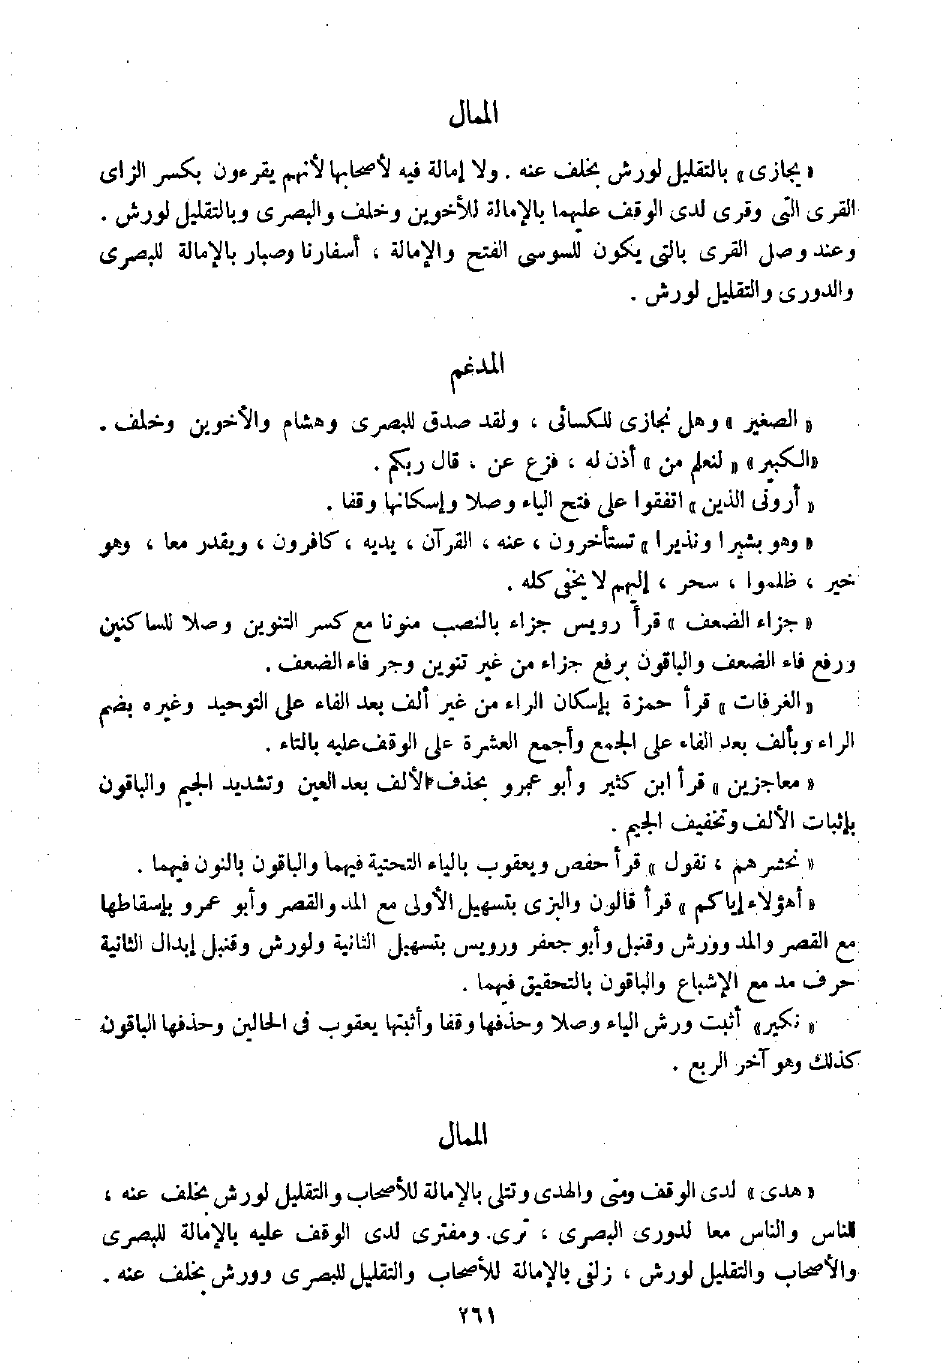 الممال
« يجازى » بالتقليل لورش بخلف عنه . ولا إمالة فيه لأصحابها لأنهم يقرءون بكسر الزاى
القرى التى وقرى لدى الوقف عليهما بالإمالة للأخوين وخلف والبصرى وبالتقليل لورش .
وعند وصل القرى بالتى يكون للسوسى الفتح والإمالة ، أسفارنا وصبار بالإمالة للبصرى
والدورى والتقليل لورش .
المدغم
« الصغير » وهل نجازى للكسائى ، ولقد صدق للبصرى وهشام والأخوين وخلف .
« الكبير » « لنعلم من » أذن له ، فزع عن ، قال ربكم .
« أرونى الذين » اتفقوا على فتح الياء وصلا وإسكانها وقفا .
« وهو بشيرا ونذيرا » تستأخرون ، عنه ، القرآن ، يديه ، كافرون ، ويقدر معا ، وهو
خير ، ظلموا ، سحر ، إليهم لا يخفى كله .
« جزاء الضعف » قرأ رويس جزاء بالنصب منونا مع كسر التنوين وصلا للساكنين
ورفع فاء الضعف والباقون برفع جزاء من غير تنوين وجر فاء الضعف .
« الغرفات » قرأ حمزة بإسكان الراء من غير ألف بعد الفاء على التوحيد وغيره بضم
الراء وبألف بعد الفاء على الجمع وأجمع العشرة على الوقف عليه بالتاء .
« معاجزين » قرأ ابن كثير وأبو عمرو بحذف الألف بعد العين وتشديد الجيم والباقون
بإثبات الألف وتخفيف الجيم .
« نحشرهم ، نقول » قرأ حفص ويعقوب بالياء التحتية فيهما والباقون بالنون فيهما .
« أهؤلاء إياكم » قرأ قالون والبزى بتسهيل الأولى مع المد والقصر وأبو عمرو بإسقاطها
مع القصر والمد وورش وقنبل وأبو جعفر ورويس بتسهيل الثانية ولورش وقنبل إبدال الثانية
حرف مد مع الإشباع والباقون بالتحقيق فيهما .
« نكير » أثبت ورش الياء وصلا وحذفها وقفا وأثبتها يعقوب فى الحالين وحذفها الباقون
كذلك وهو آخر الربع .
الممال
« هدى » لدى الوقف ومتى والهدى وتتلى بالإمالة للأصحاب والتقليل لورش بخلف عنه ،
للناس والناس معا لدورى البصرى ، ترى. ومفترى لدى الوقف عليه بالإمالة للبصرى
والأصحاب والتقليل لورش ، زلفى بالإمالة للأصحاب والتقليل للبصرى وورش بخلف عنه .
٢٦١